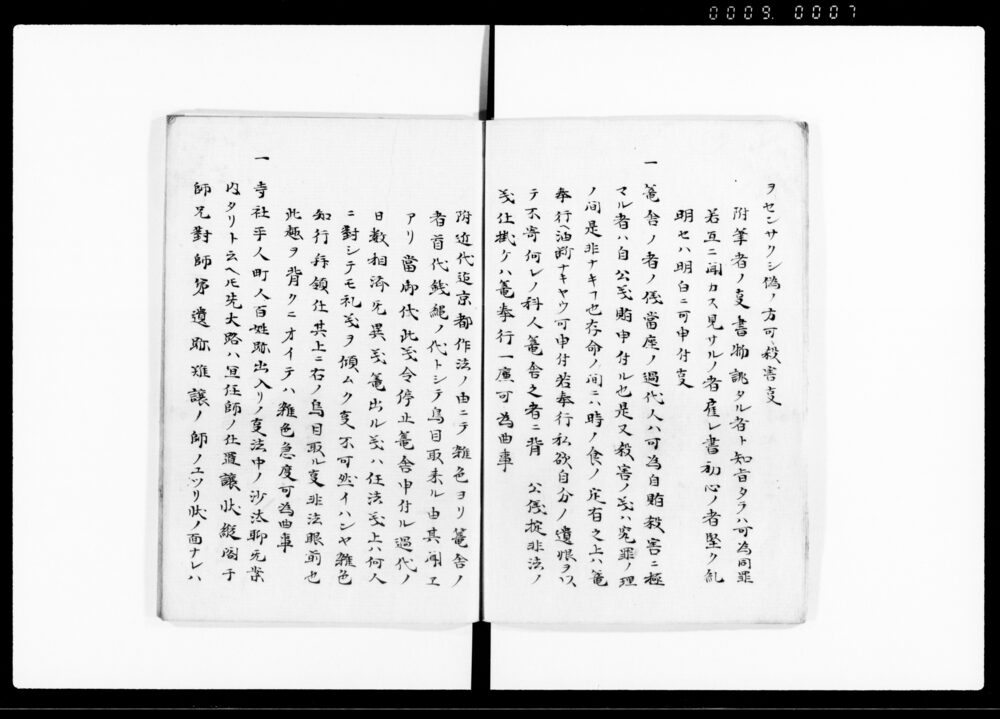 0009. 0007
ヲセンサクシ偽ノ方可殺害叓
附筆者ノ叓書物誂タル者ト知音タラハ可為同罪
若互ニ聞カス見サルノ者雇レ書初心ノ者堅ク糺
明セハ明白ニ可申付叓
一 篭舎ノ者ノ儀當座ノ過代人ハ可為自賄殺害ニ極
マル者ハ自公義賄申付ル也是又殺害ノ義ハ究罪ノ理
ノ間是非ナキヿ也存命ノ間ニハ時ノ食ノ定有之上ハ篭
奉行ヘ油断ナキヤウ可申付若奉行私欲自分ノ遺恨ヲハ
テ不寄何レノ科人篭舎之者ニ背 公儀掟非法ノ
義仕掛ケハ篭奉行一廉可為曲事
附近代迄京都作法ノ由ニテ雑色ヨリ篭舎ノ
者首代銭縄ノ代トシテ鳥目取来ル由其聞ヱ
アリ當御代此義令停止篭舎申付ル過代ノ
日数相済无異義篭出ル義ハ任法義上ハ何人
ニ對シテモ礼義ヲ傾ムク叓不可然イハンヤ雑色
知行拝領仕其上ニ右ノ鳥目取ル叓非法眼前也
此趣ヲ背クニオイテハ雑色急度可為曲事
一 寺社平人町人百姓跡出入リノ叓法中ノ沙汰聊无案
内タリト云ヘ𪜈先大略ハ宜任師ノ仕置譲状縦閣子
師兄對師弟遺跡雖譲ノ師ノユツリ状ノ面ナレハ